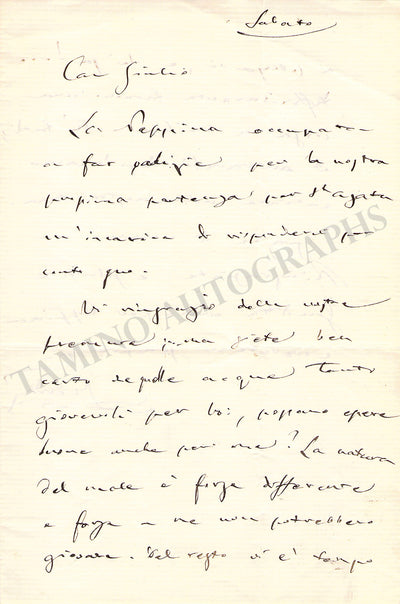 Sabato
Car Giulio
La Peppina occupata
a far pulizie per la nostra
prossima partenza per St Agata
m'incarica di rispondervi per
conto suo.
Vi ringrazio della vostra
premura, ma siete ben
certo che quelle acque tanto
giovevoli per voi, possano essere
buone anche per me? La natura
del male è forse differente
e forse a me non potrebbero
giovare. Del resto vi è tempo
TAMINO AUTOGRAPHS